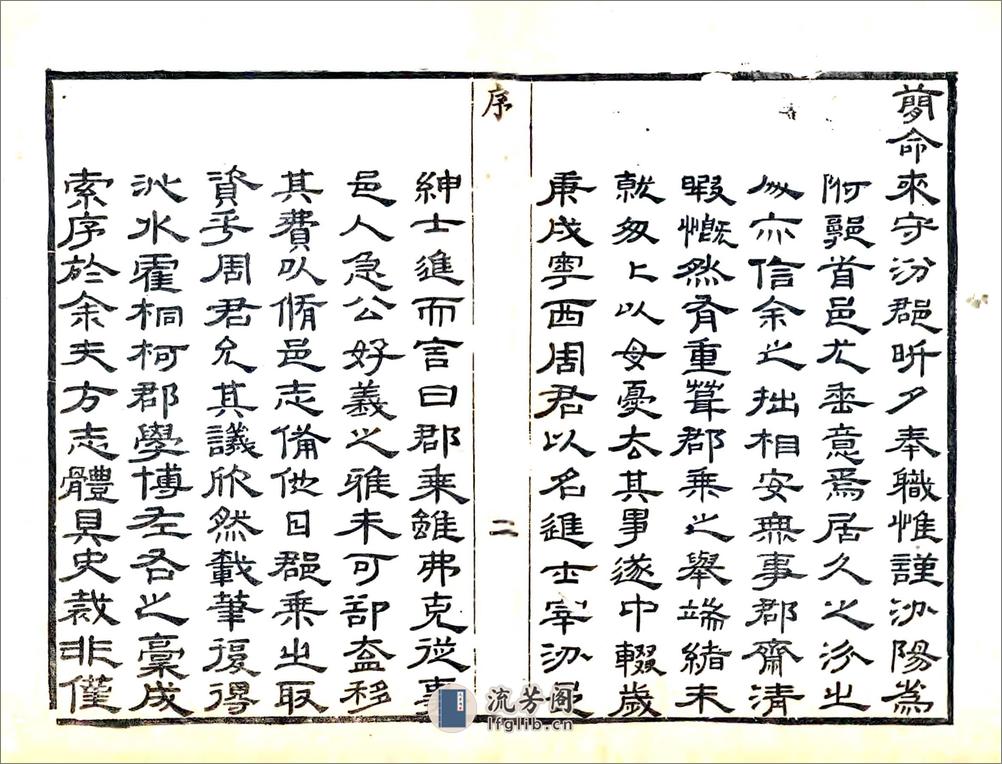 蕳命來守汾郡昕夕奉職惟謹汾陽爲
附郭首邑尤垂意焉居久之汾之
人亦信余之拙相安無事郡齋清
暇慨然有重葺郡乘之舉端緒未
就匆匆以母憂去其事遂中輟歲
庚戌粤西周君以名進士宰汾邑
序
二
紳士進而言曰郡乘雖弗克從事
邑人急公好義之雅未可卻盍移
其費以脩邑志備他日郡乘之取
資乎周君允其議欣然載筆復得
沁水霍桐柯郡學博左右之稾成
索序於余夫方志體具史裁非僅
流芳阁
lfglib.cn